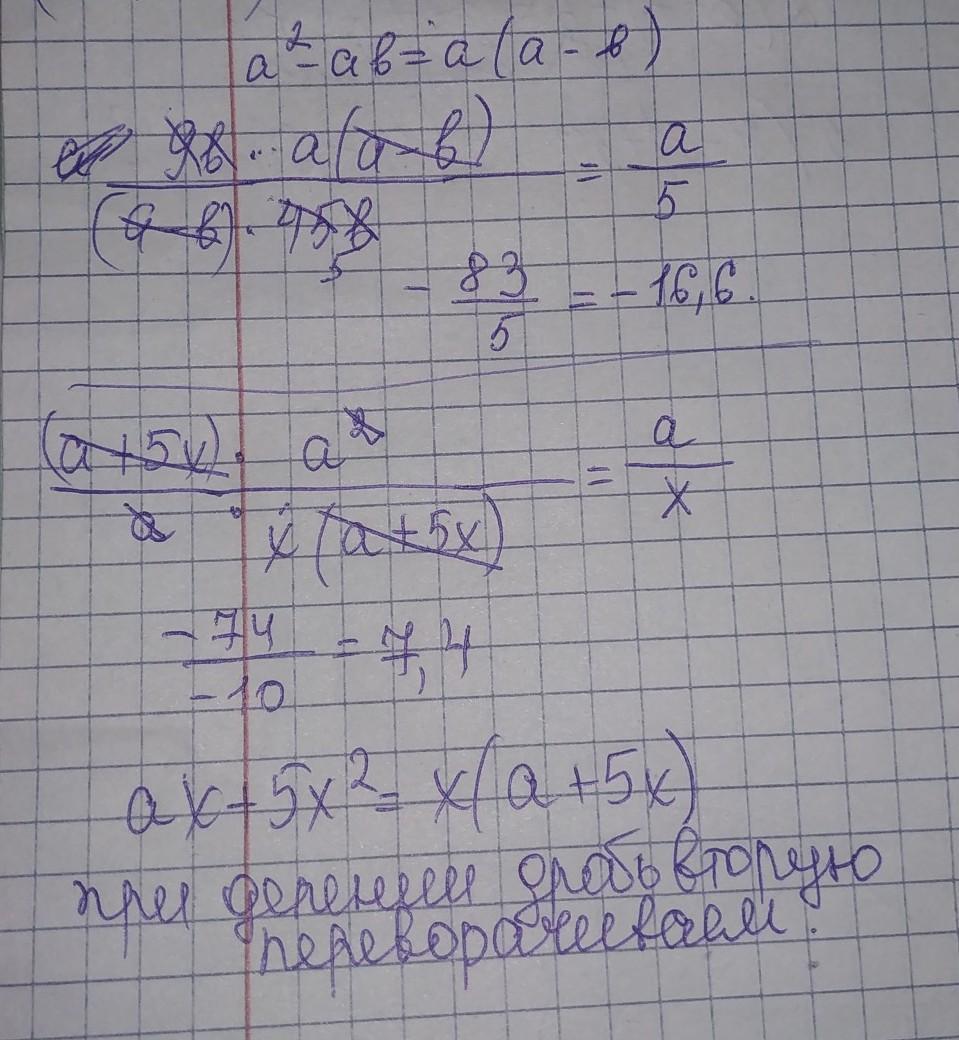 a² - ab = a (a - b)
9b · a(a - b) / (a - b) · 45b = a / 5
5
- 83 / 5 = - 16,6.
(a + 5x) · a² / a · x (a + 5x) = a / x
-74 / -10 = 7,4
ax + 5x² = x(a + 5x)
при делении дробь вторую
переворачиваем.